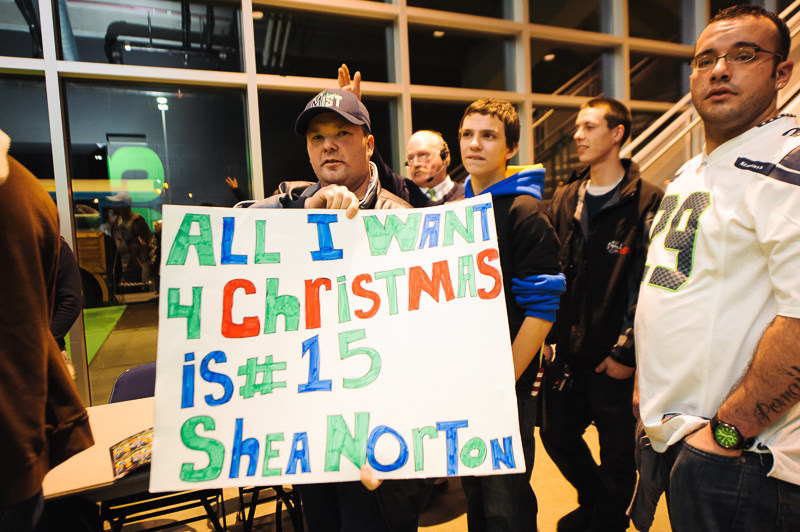 All I WANT
4 ChrisTMAS
is #15
SheA NOrTON
29